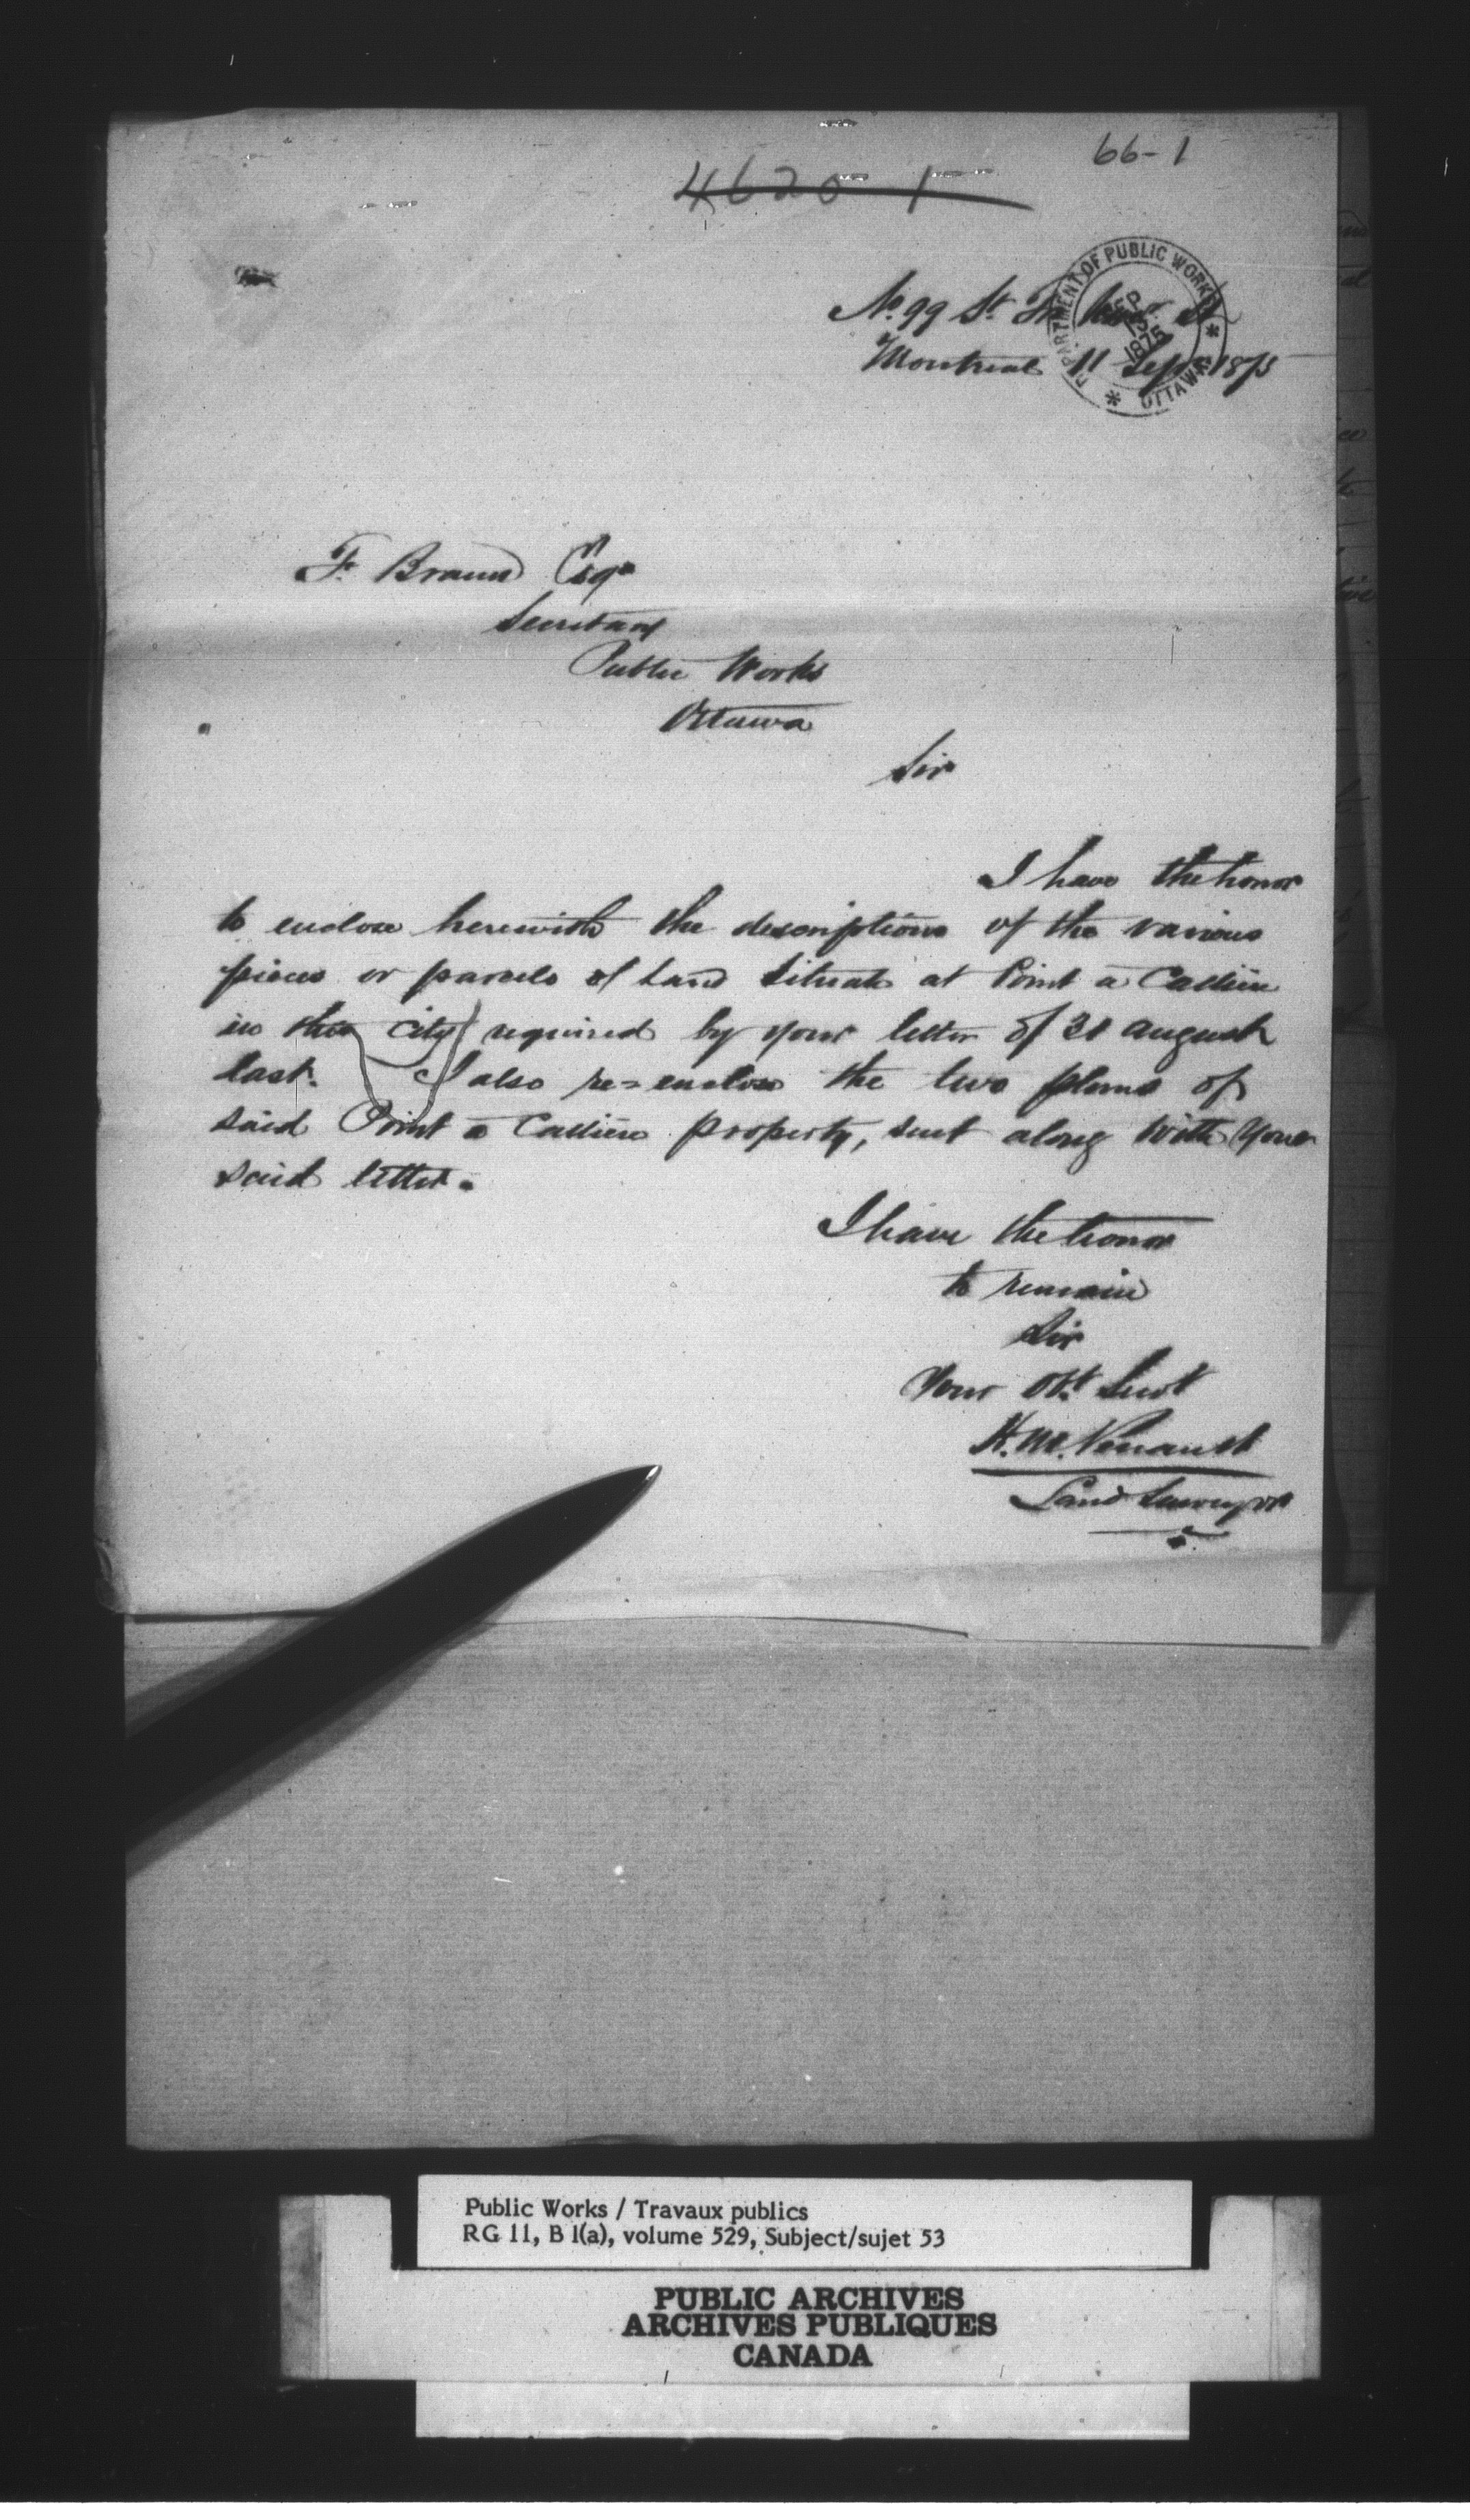 66-1
4620 1
DEPARTMENT OF PUBLIC WORKS
SEP
15
1875
* OTTAWA *
No. 99 St. Frs. St
Montreal 11 Sept 1875
F. Braun Esqr
Secretary
Public Works
Ottawa
Sir
I have the honor
to enclose herewith the descriptions of the various
pieces or parcels of Land situate at Point a Callière
in this City required by your letter of 31 August
last. I also re=enclose the two plans of
said Point a Callière property, sent along with your
said letter.
I have the honor
to remain
Sir
Your Obt. Servt
H. M. Perrault
Land Surveyor
Public Works / Travaux publics
RG 11, B 1(a), volume 529, Subject/sujet 53
PUBLIC ARCHIVES
ARCHIVES PUBLIQUES
CANADA